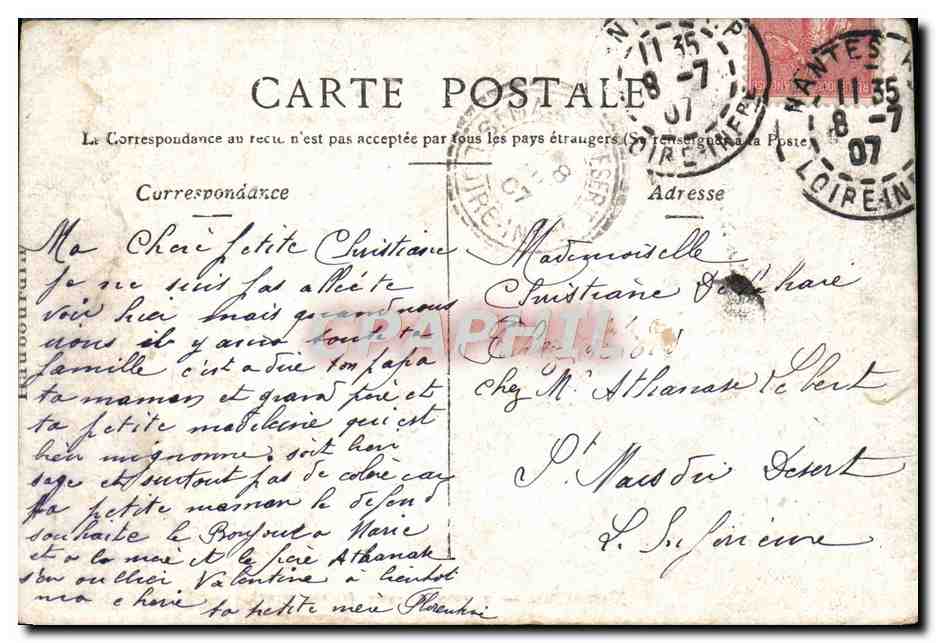 CARTE POSTALE
La Correspondance au recto n'est pas acceptée par tous les pays étrangers (Se renseigner à la Poste)
Correspondance
Adresse
NANTES
11 35
8 -7
07
LOIRE-INFRE
NANTES
11 35
8 -7
07
LOIRE-INF
DESERT
8
07
LOIRE-INF
Ma Cheré petite Christiane
je ne suis pas allée te
voir hier mais quand nous
irons il y aura toute ta
famille c'est a dire ton papa
ta maman et grand père et
ta petite madeleine qui est
bien mignonne. soit bien
sage et surtout pas de colère car
ta petite maman le defend
souhaite le Bonjour a Marie
et a la mère et le père Athanase
s'en oublier Valentine à bientot
ma cherie
ta petite mère
Mademoiselle
Christiane
chez Mr Athanase Lebert
St Mars du Desert
L. Inferieure
CPAPHIL